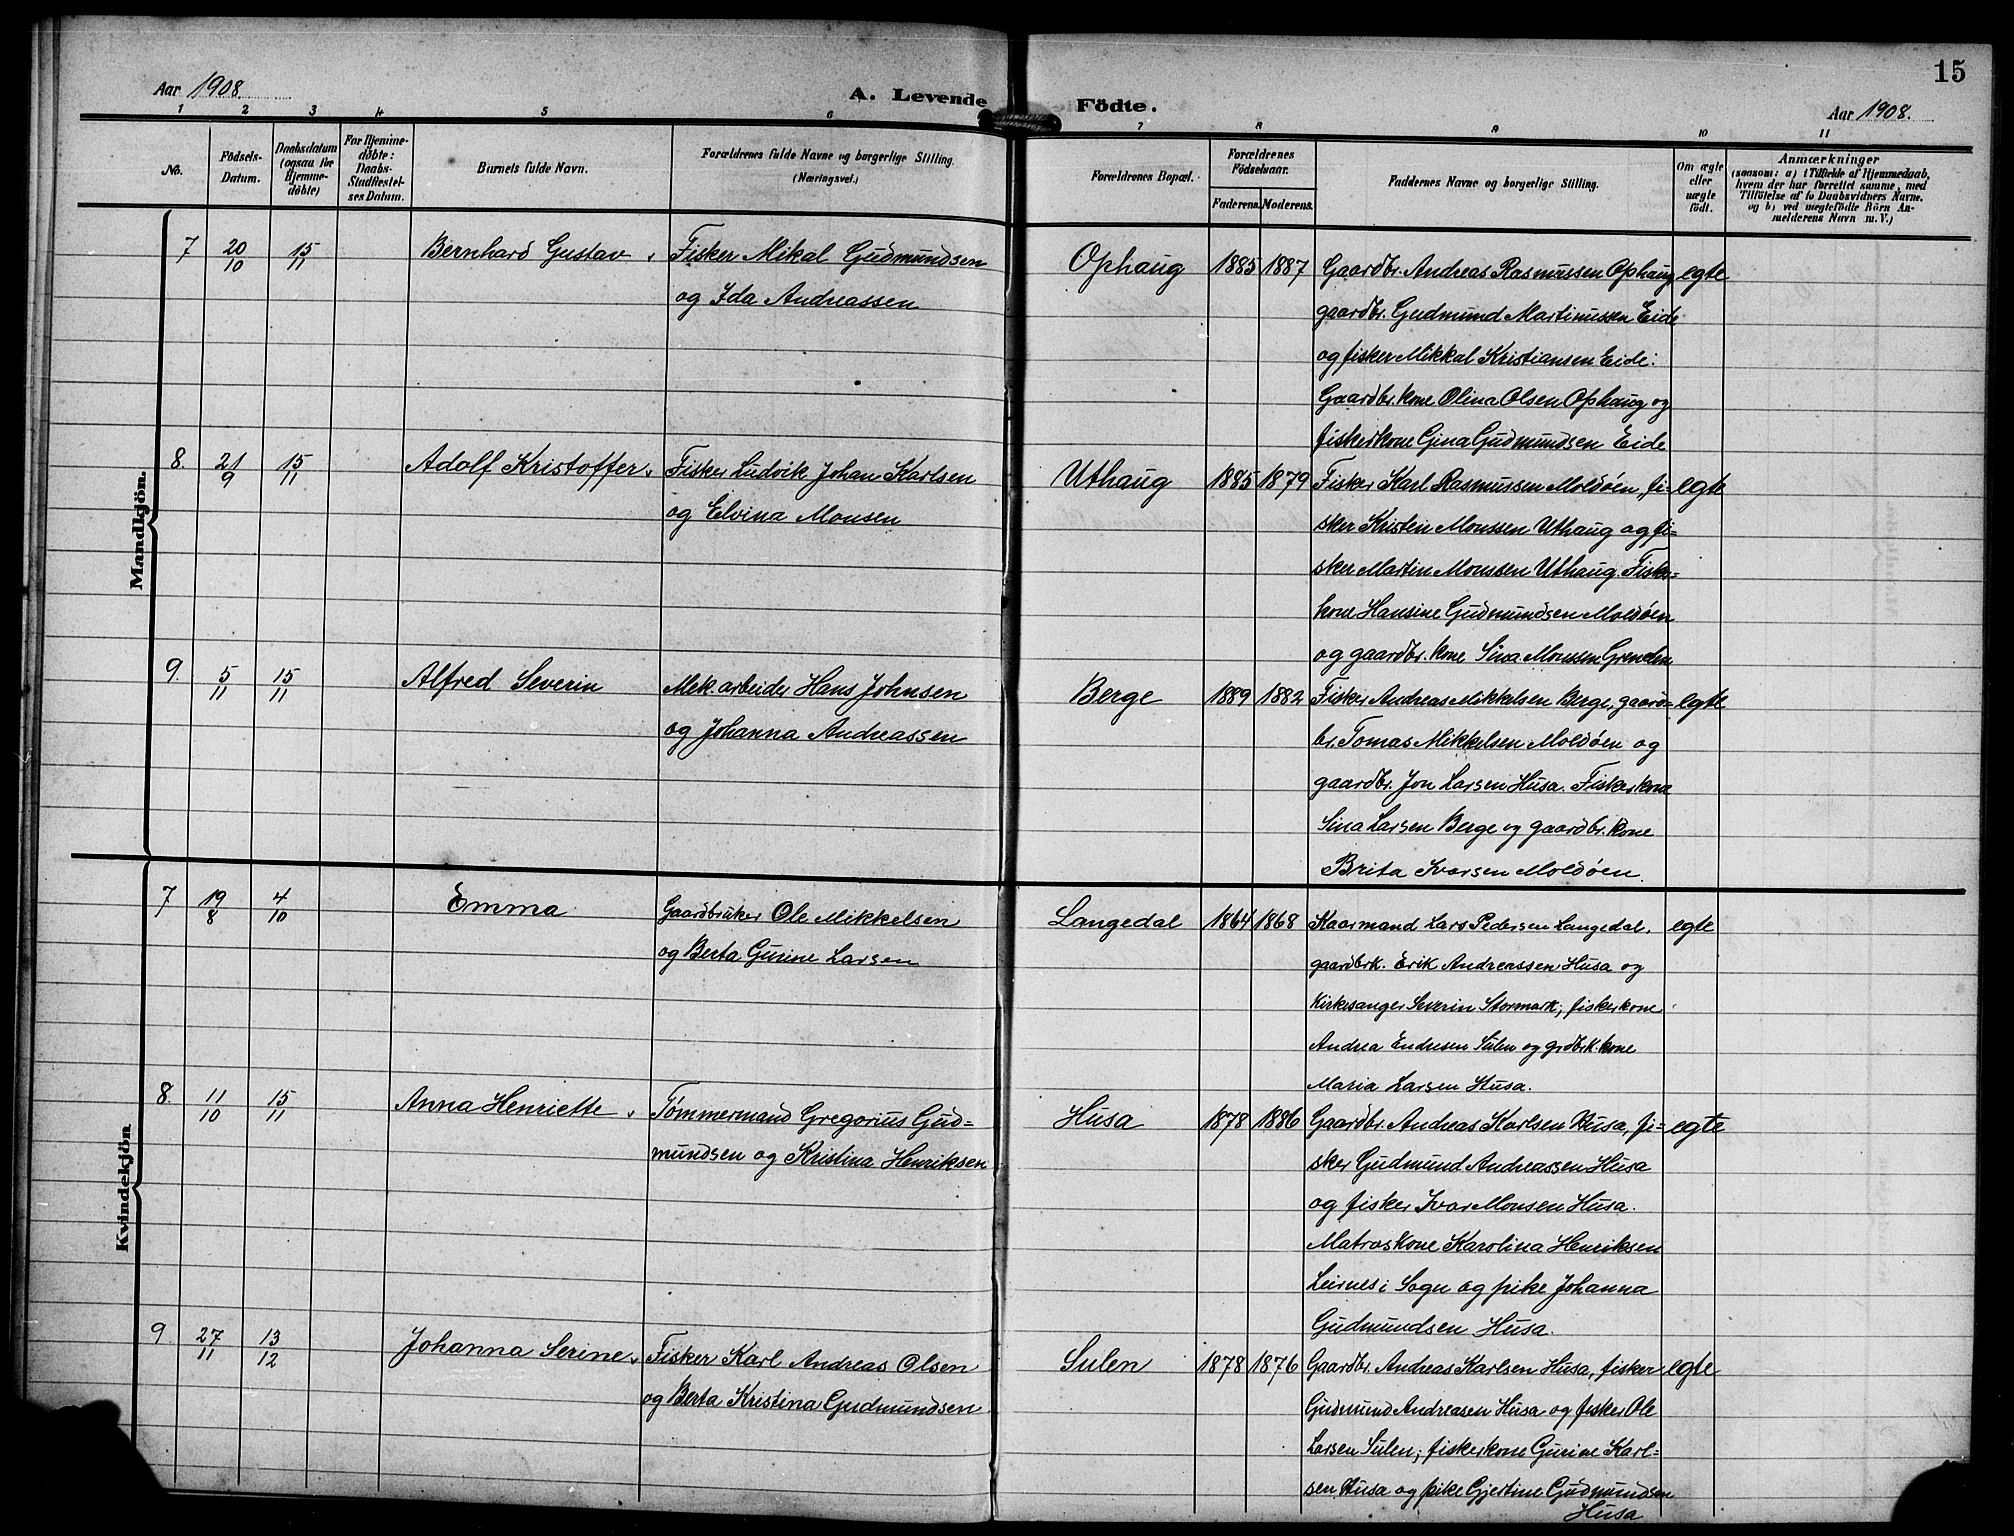 15
Aar 1908.
A. Levende Födte.
Aar 1908.
1 2 3 4 5 6 7 8 9 10 11
No.
Födsels-Datum.
Daabsdatum (ogsaa for Hjemme-döbte)
For Hjemme-döbte: Daabs-Stadfæstel-ses Datum.
Barnets fulde Navn.
Forældrenes fulde Navne og borgerlige Stilling.
(Næringsvei.)
Forældrenes Bopæl.
Forældrenes Födselsaar.
Faderens. Moderens.
Faddernes Navne og borgerlige Stilling.
Om ægte eller uægte födt.
Anmærkninger
(saasom: a) i Tilfælde af Hjemmedaab,
hvem der har forrettet samme, med
Tilföielse af to Daabsvidners Navne,
og b) ved uægtefödte Börn An-
melderens Navn m. V.)
Mandkjön.
7 20/10 15/11 Bernhard Gustav Fisker Mikal Gudmundsen Ophaug 1885 1887 Gaardbr. Andreas Rasmussen Ophaug egte
og Ida Andreassen gaardbr. Gudmund Martinussen Eide
og fisker Mikkal Kristiansen Eide.
Gaardbr. kone Olina Olsen Ophaug og
fiskerkone Gina Gudmundsen Eide
8. 21/9 15/11 Adolf Kristoffer Fisker Ludvik Johan Karlsen Uthaug 1885 1879 Fisker Karl Rasmussen Moldöen, fi- egte
og Elvina Monsen sker Kristen Monssen Uthaug og fi=
sker Martin Monssen Uthaug. Fisker=
kone Hansine Gudmundsen Moldöen
og gaardbr. kone Sina Monssen Grenden
9. 5/11 15/11 Alfred Severin Mek. arbeider Hans Johnsen Berge 1889 1882 Fisker Andreas Mikkelsen Berge, gaard= egte
og Johanna Andreassen br. Tomas Mikkelsen Moldöen og
gaardbr. Jon Larsen Husa. Fiskerkone
Sina Larsen Berge og gaardbr. kone
Brita Ivarsen Moldöen.
Kvindekjön
7 19/8 4/10 Emma Gaardbruker Ole Mikkelsen Langedal 1864 1868 Kaarmand Lars Pedersen Langedal, egte
og Berta Gurine Larsen gaardbrk. Erik Andreassen Husa og
Kirkesanger Severin Stormark; fiskerkone
Andrea Endresen Sulen og grdbrk. kone
Maria Larsen Husa.
8. 11/10 15/11 Anna Henriette Tømmermand Gregorius Gud= Husa 1878 1886 Gaardbr. Andreas Karlsen Husa, fi- egte
mundsen og Kristina Henriksen sker Gudmund Andreassen Husa
og fisker Ivar Monsen Husa.
Matroskone Karolina Henriksen
Leirnes i Sogn og pike Johanna
Gudmundsen Husa.
9. 27/11 13/12 Johanna Serine Fisker Karl Andreas Olsen Sulen 1878 1876 Gaardbr. Andreas Karlsen Husa, fisker egte
og Berta Kristina Gudmundsen Gudmund Andreasen Husa og fisker Ole
Larsen Sulen; fiskerkone Gurine Karl=
sen Husa og pike Gjertine Gudmundsen
Husa